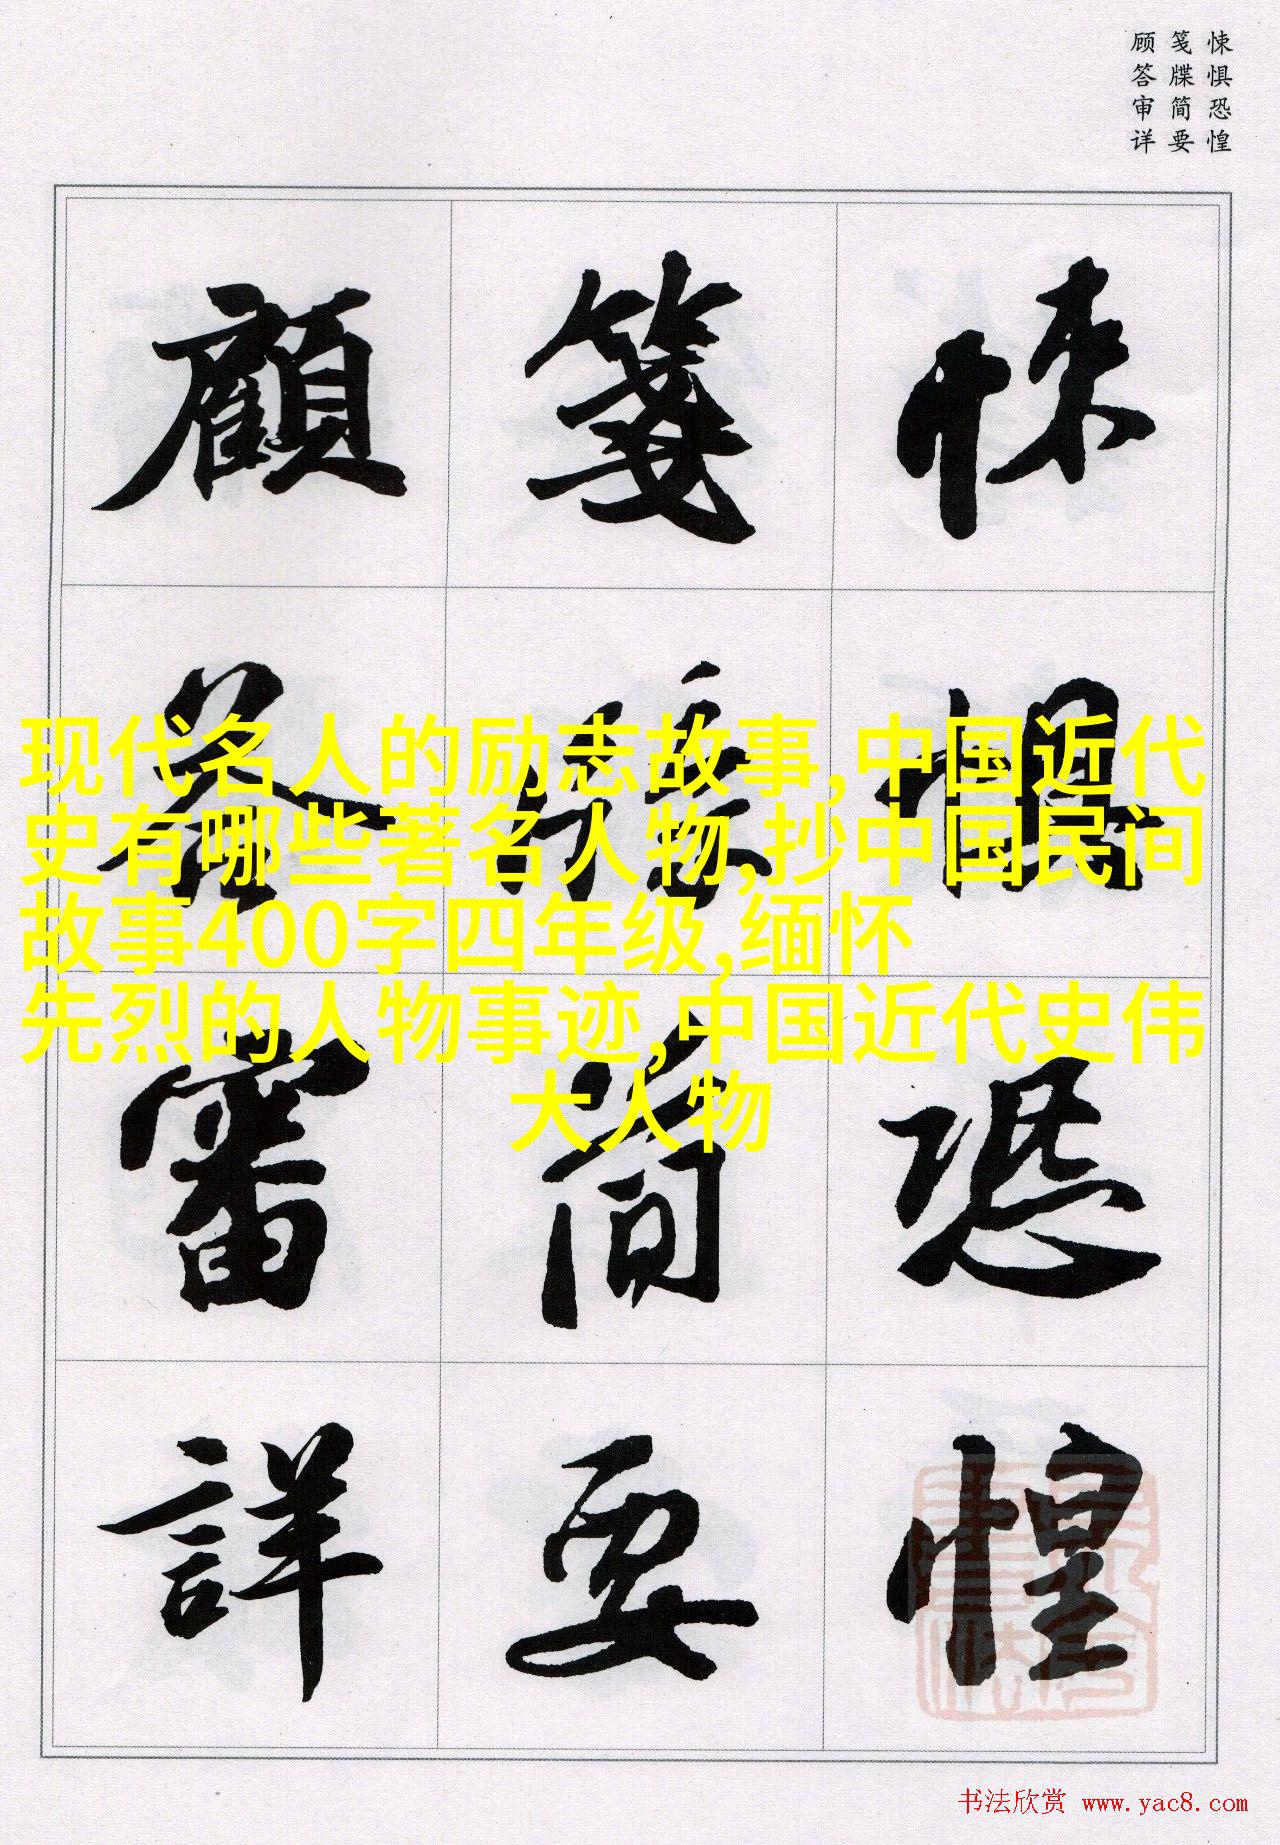 悚惧恐惶
笺牒简要
顾答审详
悚惧恐惶
笺牒简要
顧答審詳
现代名人的励志故事,中国近代
史有哪些著名人物,抄中国民间
故事400字四年级,缅怀
先烈的人物事迹,中国近代史伟
大人物
书法欣赏 www.yac8.com